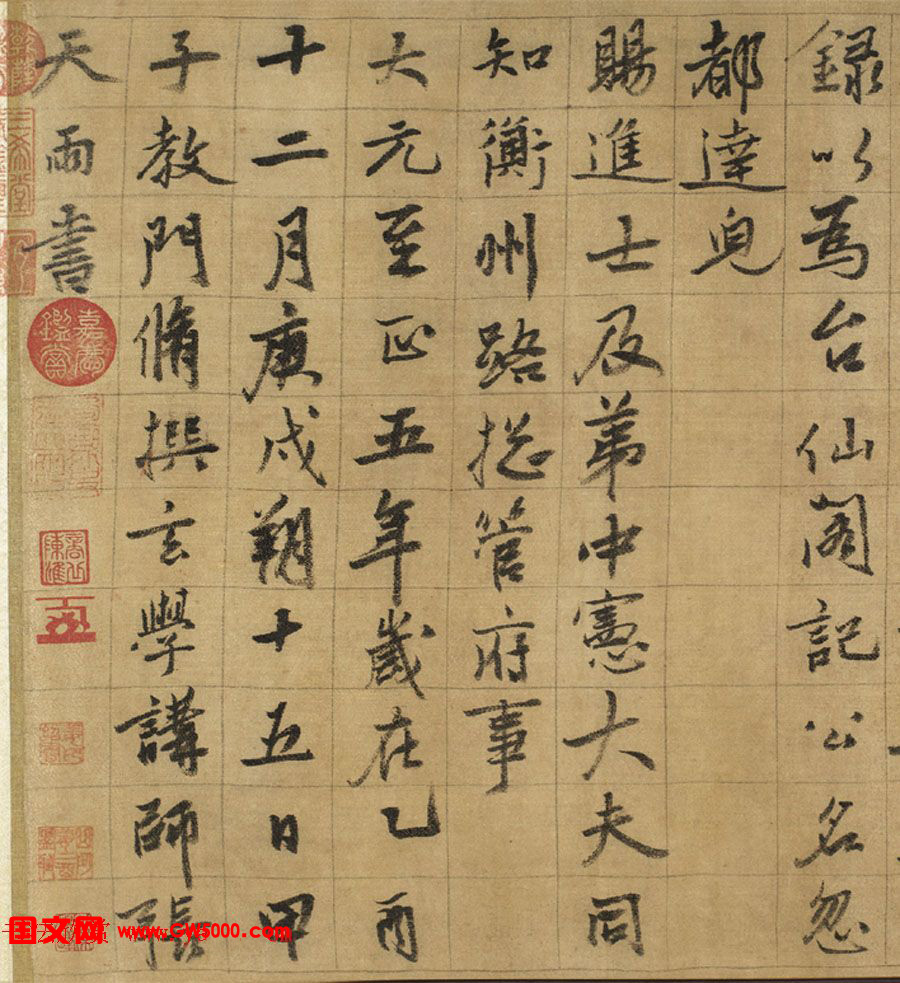 録以為台仙閣記公名忽
都達皃
賜進士及第中憲大夫同
知衡州路揔管府事
大元至正五年歲在乙酉
十二月庚戌朔十五日甲
子教門脩撰玄學講師張
天雨書
嘉慶鑑賞
国文网 www.GW5000.com